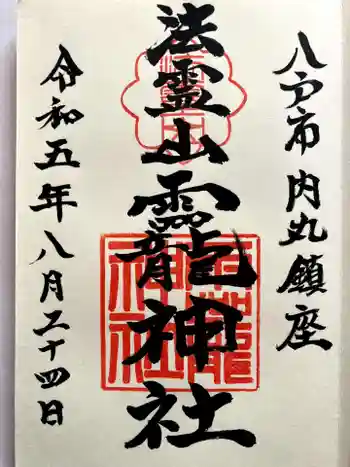 八戸市内丸鎮座
法霊山龗神社
龗神社
令和五年八月二十四日